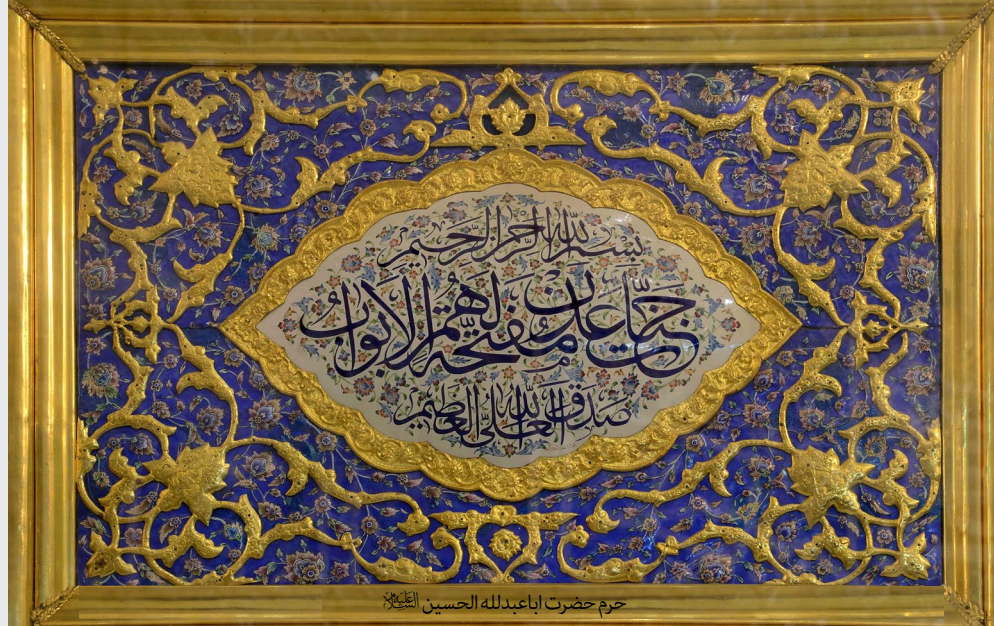 بِسْمِ اللّٰهِ الرَّحْمٰنِ الرَّحِيمِ
جَنَّاتِ عَدْنٍ مُفَتَّحَةً لَهُمُ الْاَبْوَابُ
صَدَقَ اللّٰهُ الْعَلِيُّ الْعَظِيمُ
حرم حضرت اباعبدلله الحسین علیه السلام